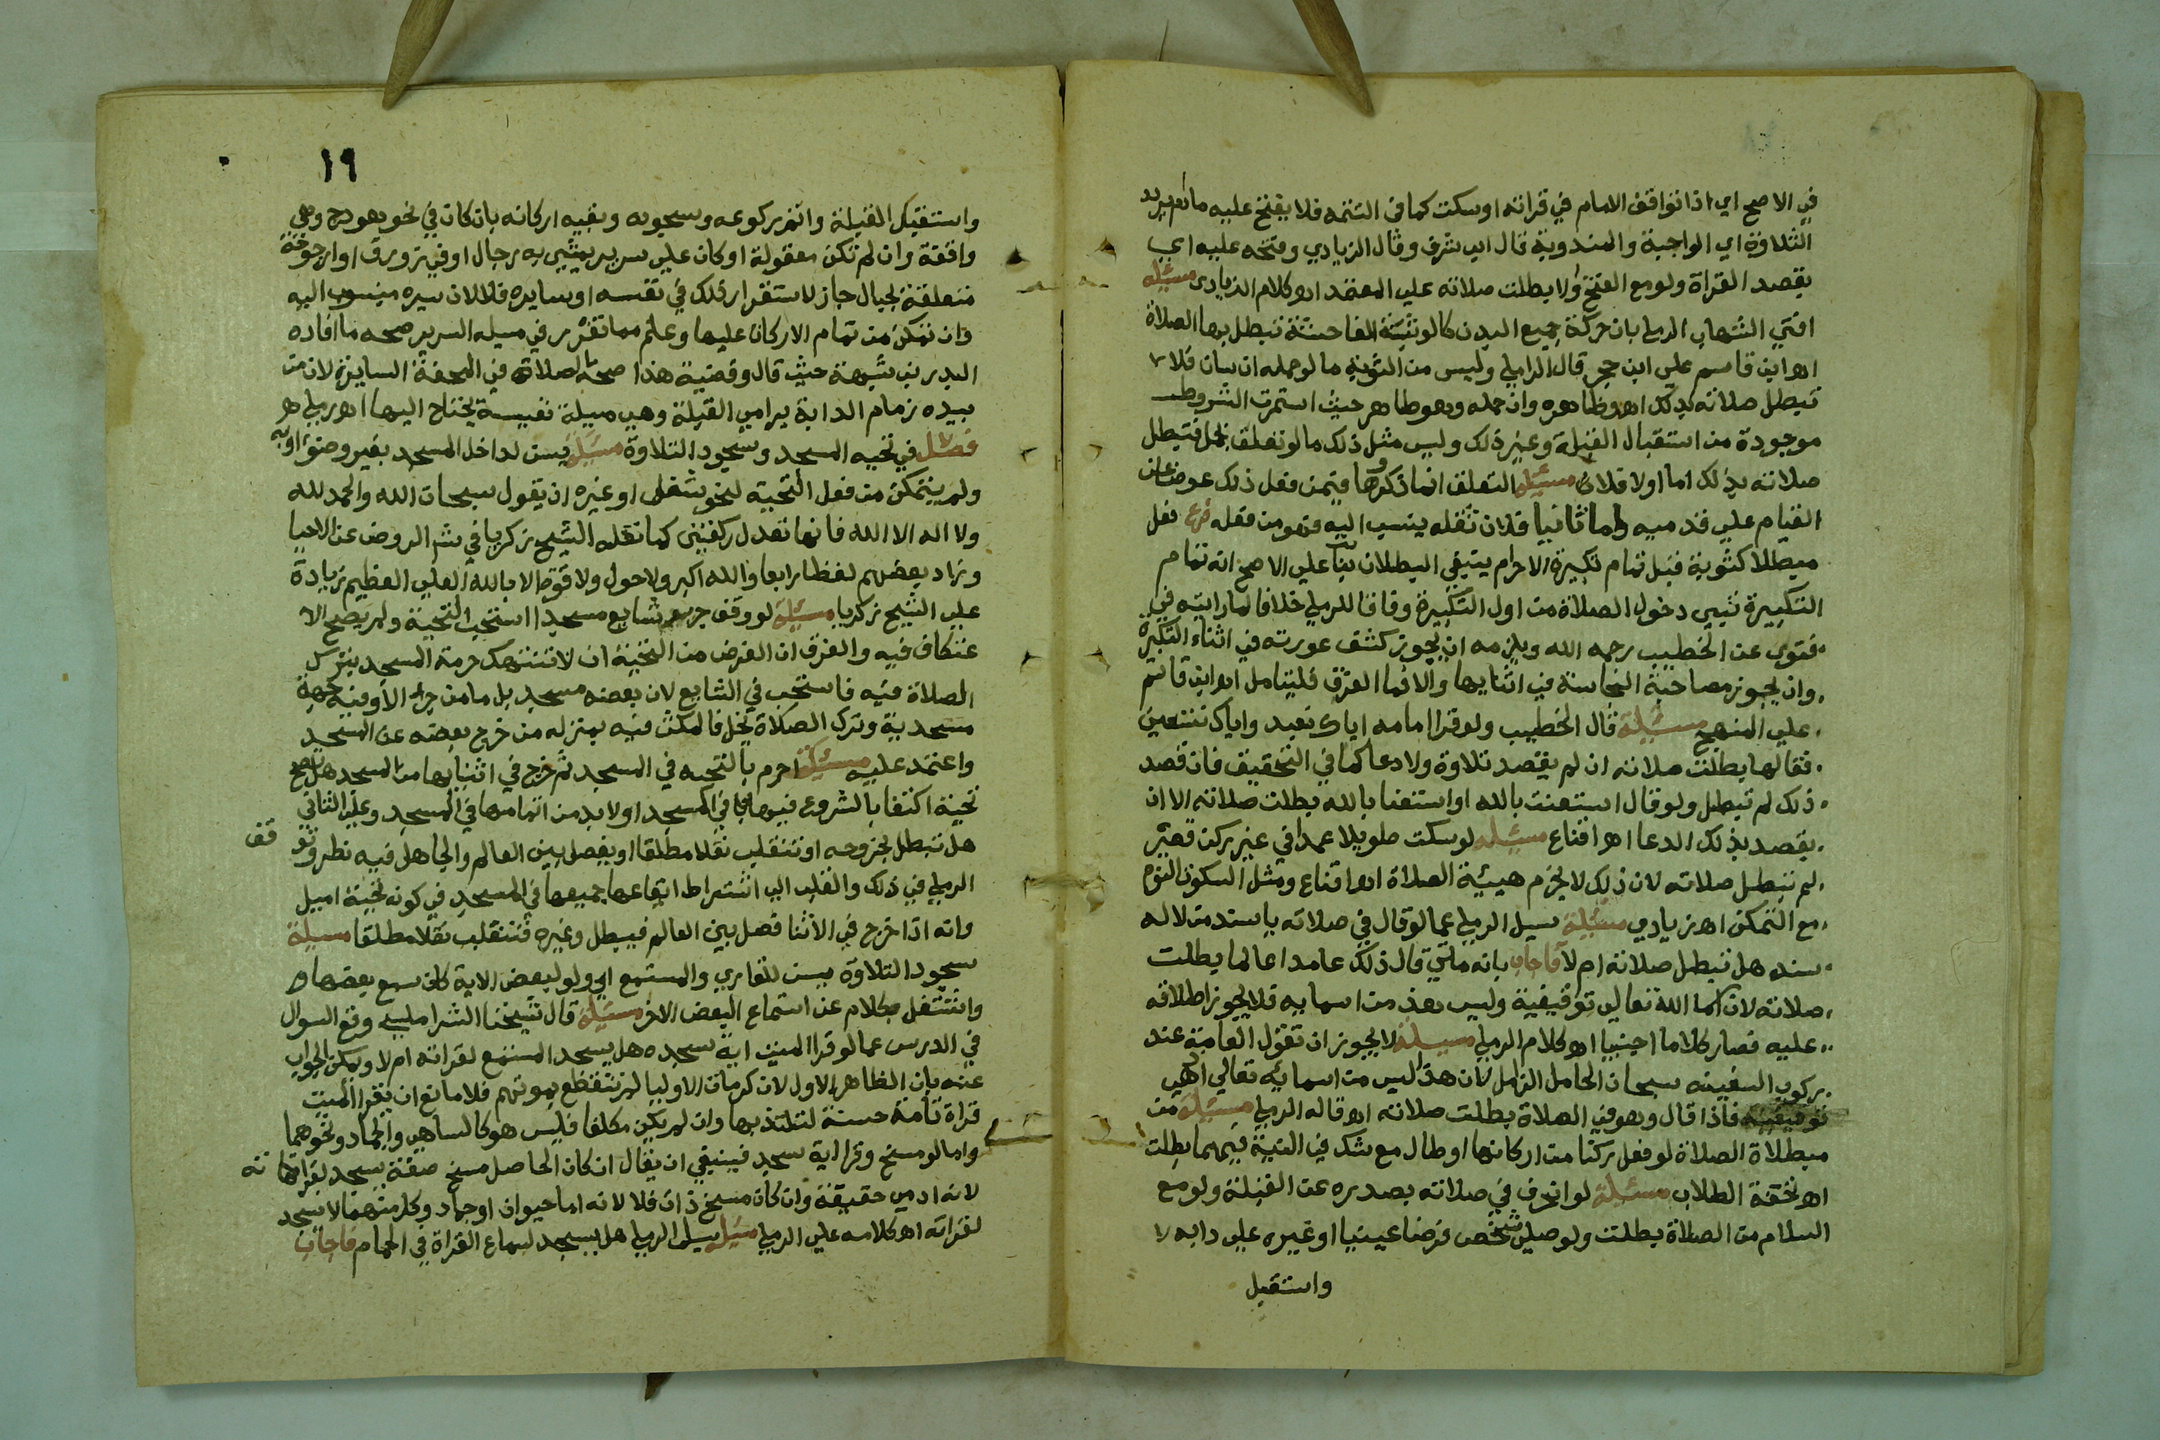 في الاصح اي اذا توافق الامام في قرانه او سكت كما في التتمه فلا يفتح عليه ما دام يردد
التلاوة اي الواجبة والمندوبة قال ابن شرف وقال الزيادي وفتحه عليه اي
بقصد القراة ولو مع الفتح والا بطلت صلاته علي المعتمد اه كلام الزيادي مسئله
افتي الشهاب الرملي بان حركة جميع البدن كالوثبة الفاحشة تبطل بها الصلاة
اه ابن قاسم علي ابن حجر قال الرملي وليس من الوثبة ما لو حمله انسان فلا
تبطل صلاته بذلك اه وظاهره وان حمله وهو ظاهر حيث استمرت الشروط
موجودة من استقبال القبلة وغير ذلك وليس مثل ذلك ما لو تعلق بحبل فتبطل
صلاته بذلك اما اولا فلان مسئلة التعلق انما ذكروها فيمن فعل ذلك عوضا عن
القيام علي قدميه واما ثانيا فلان ثقله ينسب اليه فهو من فعله فرع فعل
مبطلا كثوبة قبل تمام تكبيرة الاحرام ينبغي البطلان بناء علي الاصح انه تمام
التكبيرة تبين دخول الصلاة من اول التكبيرة وفاقا للرملي خلافا لما رايته في
فتوي عن الخطيب رحمه الله ويلزمه ان يجوز كشف عورته في اثناء التكبيرة
وان يجوز مصاحبة النجاسة في اثنايها والا فما الفرق فليتامل اه ابن قاسم
علي المنهج مسئلة قال الخطيب ولو قرا امامه اياك نعبد واياك نستعين
فقالها بطلت صلاته ان لم يقصد تلاوة ولا دعا كما في التحقيق فان قصد
ذلك لم تبطل ولو قال استعنت بالله او استعنا بالله بطلت صلاته الا ان
يقصد بذلك الدعا اه اقناع مسئله لو سكت طويلا عمدا في غير ركن قصير
لم تبطل صلاته لان ذلك لا يخرم هيئة الصلاة اه اقناع ومثل السكوت النوم
مع التمكن اه زيادي مسئلة سيل الرملي عما لو قال في صلاته يا سند من لا له
سند هل تبطل صلاته ام لا فاجاب بانه متي قال ذلك عامدا عالما بطلت
صلاته لان اسما الله تعالي توقيفية وليس هذ من اسمايه فلا يجوز اطلاقه
عليه فصار كلاما اجنبيا اه كلام الرملي مسيلة لا يجوز ان تقول العامة عند
ركوب السفينه سبحان الحامل الزامل لان هذا ليس من اسمايه تعالي اذهي
توقيفية فاذا قال وهو في الصلاة بطلت صلاته اه قاله الرملي مسئلة من
مبطلاة الصلاة لو فعل ركنا من اركانها او طال مع شك في النية فيهما بطلت
اه تحفة الطلاب مسئلة لو انحرف في صلاته بصدره عن القبلة ولو مع
السلام من الصلاة بطلت ولو صلي شخص فرضا عينيا او غيره علي دابه لا
واستقبل
١٩
واستقبل القبلة واتم ركوعه وسجوده وبقيه اركانه بان كان في نحو هودج وهي
واقفة وان لم تكن معقولة او كان علي سرير يمشي به رجال او في زورق او ارجوحة
معلقة بحبال جاز لاستقرار ذلك في نفسه او سايره فلا لان سيره منسوب اليه
وان تمكن من تمام الاركان عليها وعلم مما تقرر في مسيله السرير صحه ما افاده
البدر بن شهبة حيث قال وقضية هذا صحة الصلاة في المحفة السايرة لان من
بيده زمام الدابة يراعي القبلة وهي مسيلة نفيسة يحتاج اليها اه رملي
فصل في تحيه المسجد وسجود التلاوة مسيلة يسن لداخل المسجد بغير وضوء او به
ولم يتمكن من فعل التحية لنحو شغل او غيره ان يقول سبحان الله والحمد لله
ولا اله الا الله فانها تعدل ركعتين كما نقله الشيخ زكريا في شر الروض عن الاحيا
وزاد بعضهم لفظا رابعا والله اكبر ولا حول ولا قوة الا بالله العلي العظيم زيادة
علي الشيخ زكريا مسئلة لو وقف جزء شايع مسجدا استحب التحية ولم يصح الا
عتكاف فيه والفرق ان الغرض من التحية ان لا تنتهك حرمة المسجد بترك
الصلاة فيه فاستحب في الشايع لان بعضه مسجد بل ما من جزء الا وفيه جهة
مسجدية وترك الصلاة يخل فالمكث فيه بمنزله من خرج بعضه عن المسجد
واعتمد عليه مسئلة احرم بالتحيه في المسجد ثم خرج في اثنايها من المسجد هل تصح
تحية اكتفا بالشروع فيها في المسجد او لا بد من اتمامها في المسجد وعلي الثاني
هل تبطل بخروجه او تنقلب نفلا مطلقا او يفصل بين العالم والجاهل فيه نظر وتو
قف
الرملي في ذلك والقلب الي اشتراط ايقاعها جميعها في المسجد في كونه تحية اميل
وانه اذا خرج في الاثنا فصل بين العالم فيبطل وغيره فتنقلب نفلا مطلقا مسيلة
سجود التلاوة يسن للقاري والمستمع اي ولو لبعض الاية كان سمع بعضها
واشتغل بكلام عن استماع البعض الاخر مسيلة قال شيخنا الشبراملسي وقع السوال
في الدرس عما لو قرا الميت اية سجده هل يسجد المستمع لقراته ام لا ويمكن الجواب
عنه بان الظاهر الاول لان كرمات الاوليا لم تنقطع بموتهم فلا مانع ان يقرا الميت
قراة تامة حسنة لتلتذ بها وان لم يكن مكلفا فليس هو كالساهي والجماد ونحوهما
واما لو مسخ وقرا اية سجد فينبغي ان يقال ان كان الحاصل مسخ صفة يسجد لقراتها
لانه ادمي حقيقة وان كان مسخ ذات فلا لانه اما حيوان او جماد وكل منهما لا يسجد
لقراته اه كلامه علي الرملي مسيل سيل الرملي هل يسجد لسماع القراة في الحمام فاجاب